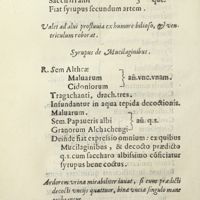 Fiat syrupus secundum artem.
Valet ad alui profluuia ex humore bilioso, & ventriculum roborat.
Syrupus de Mucilaginibus.
R. Sem Altheæ
Maluarum
Cidoniorum } añ.vnc.vnam.
Tragachanti, drach.tres.
Infundantur in aqua tepida decoctionis.
Maluarum.
Sem. Papaueris albi } añ. q.s.
Granorum Alchachengi
Deinde fiat expressio omnium: ex quibus
Mucilaginibus, & decocto prædicto
q.s. cum saccharo albissimo conficiatur
syrupus bene coctus.
Ardorem vrinæ mirabiliter iuuat, si cum prædicti
decocti vncijs quattuor, bina vncia singulo mane